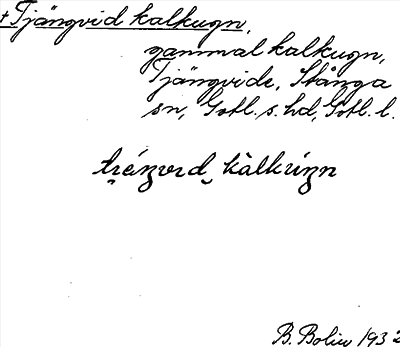 +Tjängvid kalkugn,
gammal kalkugn,
Tjängvide, Stånga
sn, Gotl. s. hd, Gotl. l.
kalkúgn
B. Bolin 1932